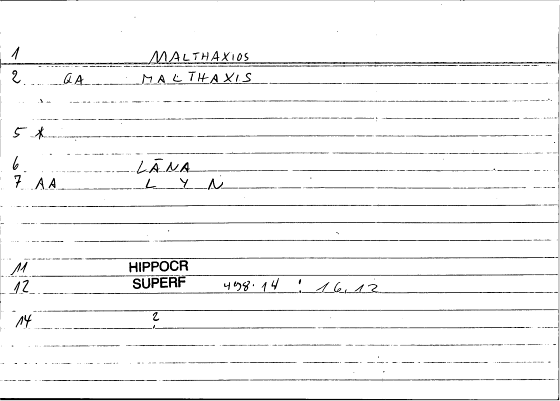 1 MALTHAXIOS
2 GA MALTHAXIS
5 *
6 LĀNA
7 AA L Y N
11 HIPPOCR
12 SUPERF 498.14 : 16.12
14 ?